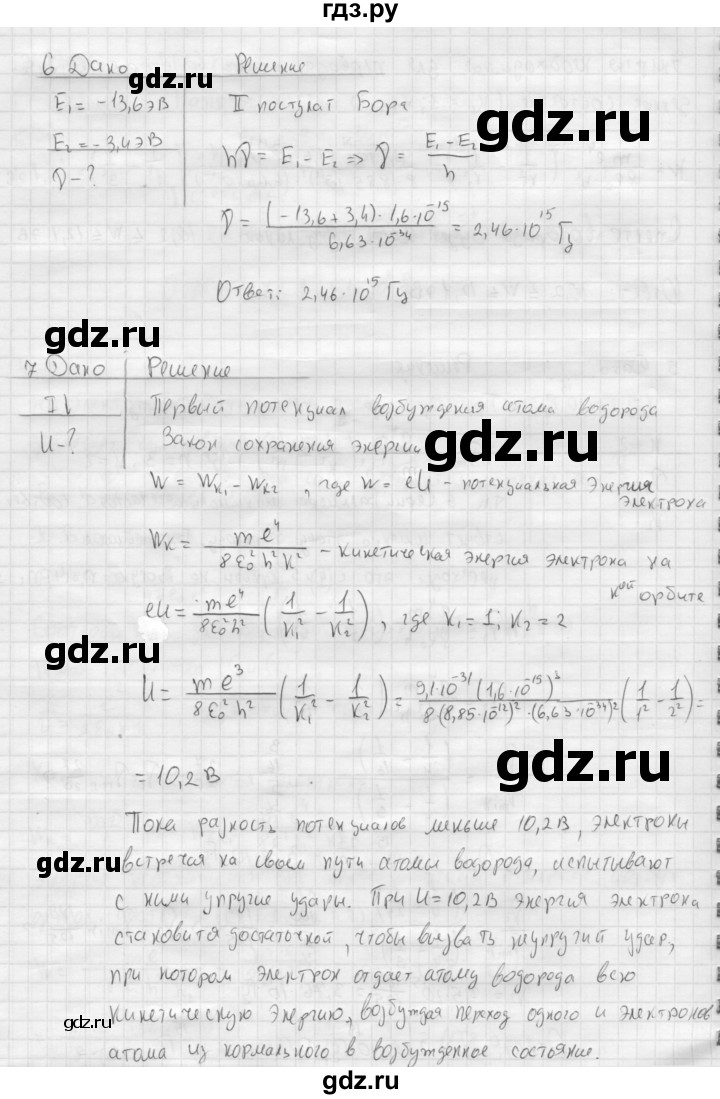 гдз.ру
6 Дано Решение
E₁ = -13,6 эВ II постулат Бора
E₂ = -3,4 эВ hν = E₁ - E₂ => ν = (E₁ - E₂)/h
ν - ?
ν = ((-13,6 + 3,4) · 1,6·10⁻¹⁵)/(6,63·10⁻³⁴) = 2,46·10¹⁵ Гц
Ответ: 2,46·10¹⁵ Гц
7 Дано Решение
Первый потенциал возбуждения атома водорода
U - ? Закон сохранения энергии
W = Wк₁ - Wк₂, где W = eU - потенциальная энергия
электрона
Wк = me⁴/(8ε₀²h²к²) - кинетическая энергия электрона на
кой орбите
eU = me⁴/(8ε₀²h²) (1/к₁² - 1/к₂²), где к₁ = 1; к₂ = 2
U = me³/(8ε₀²h²) (1/к₁² - 1/к₂²) = (9,1·10⁻³¹ (1,6·10⁻¹⁵)³)/(8·(8,85·10⁻¹²)²·(6,63·10⁻³⁴)²) (1/1² - 1/2²) =
= 10,2 В
Пока разность потенциалов меньше 10,2 В, электроны
встречая на своем пути атомы водорода, испытывают
с ними упругие удары. При U = 10,2 В энергия электрона
становится достаточной, чтобы вызвать неупругий удар,
при котором электрон отдает атому водорода всю
кинетическую энергию, возбуждая переход одного и электронов
атома из нормального в возбужденное состояние.
gdz.ru
gdz.ru
gdz.ru
gdz.ru
gdz.ru
gdz.ru
gdz.ru
gdz.ru
gdz.ru
gdz.ru
gdz.ru
gdz.ru